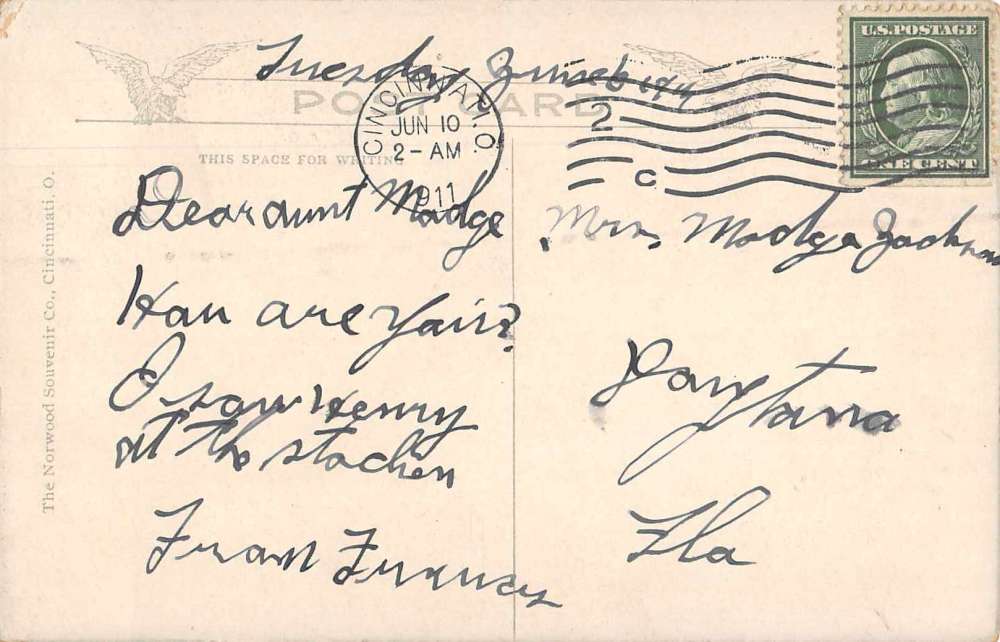 Tuesday June 6 1911
POST CARD
U.S. POSTAGE
ONE CENT
CINCINNATI, O.
JUN 10
2 - AM
1911
2
C
THIS SPACE FOR WRITING
The Norwood Souvenir Co., Cincinnati. O.
Dear aunt Madge
How are you?
I saw Henry
at the stachen
From Frances
Mrs. Madge Jackson
Daytona
Fla